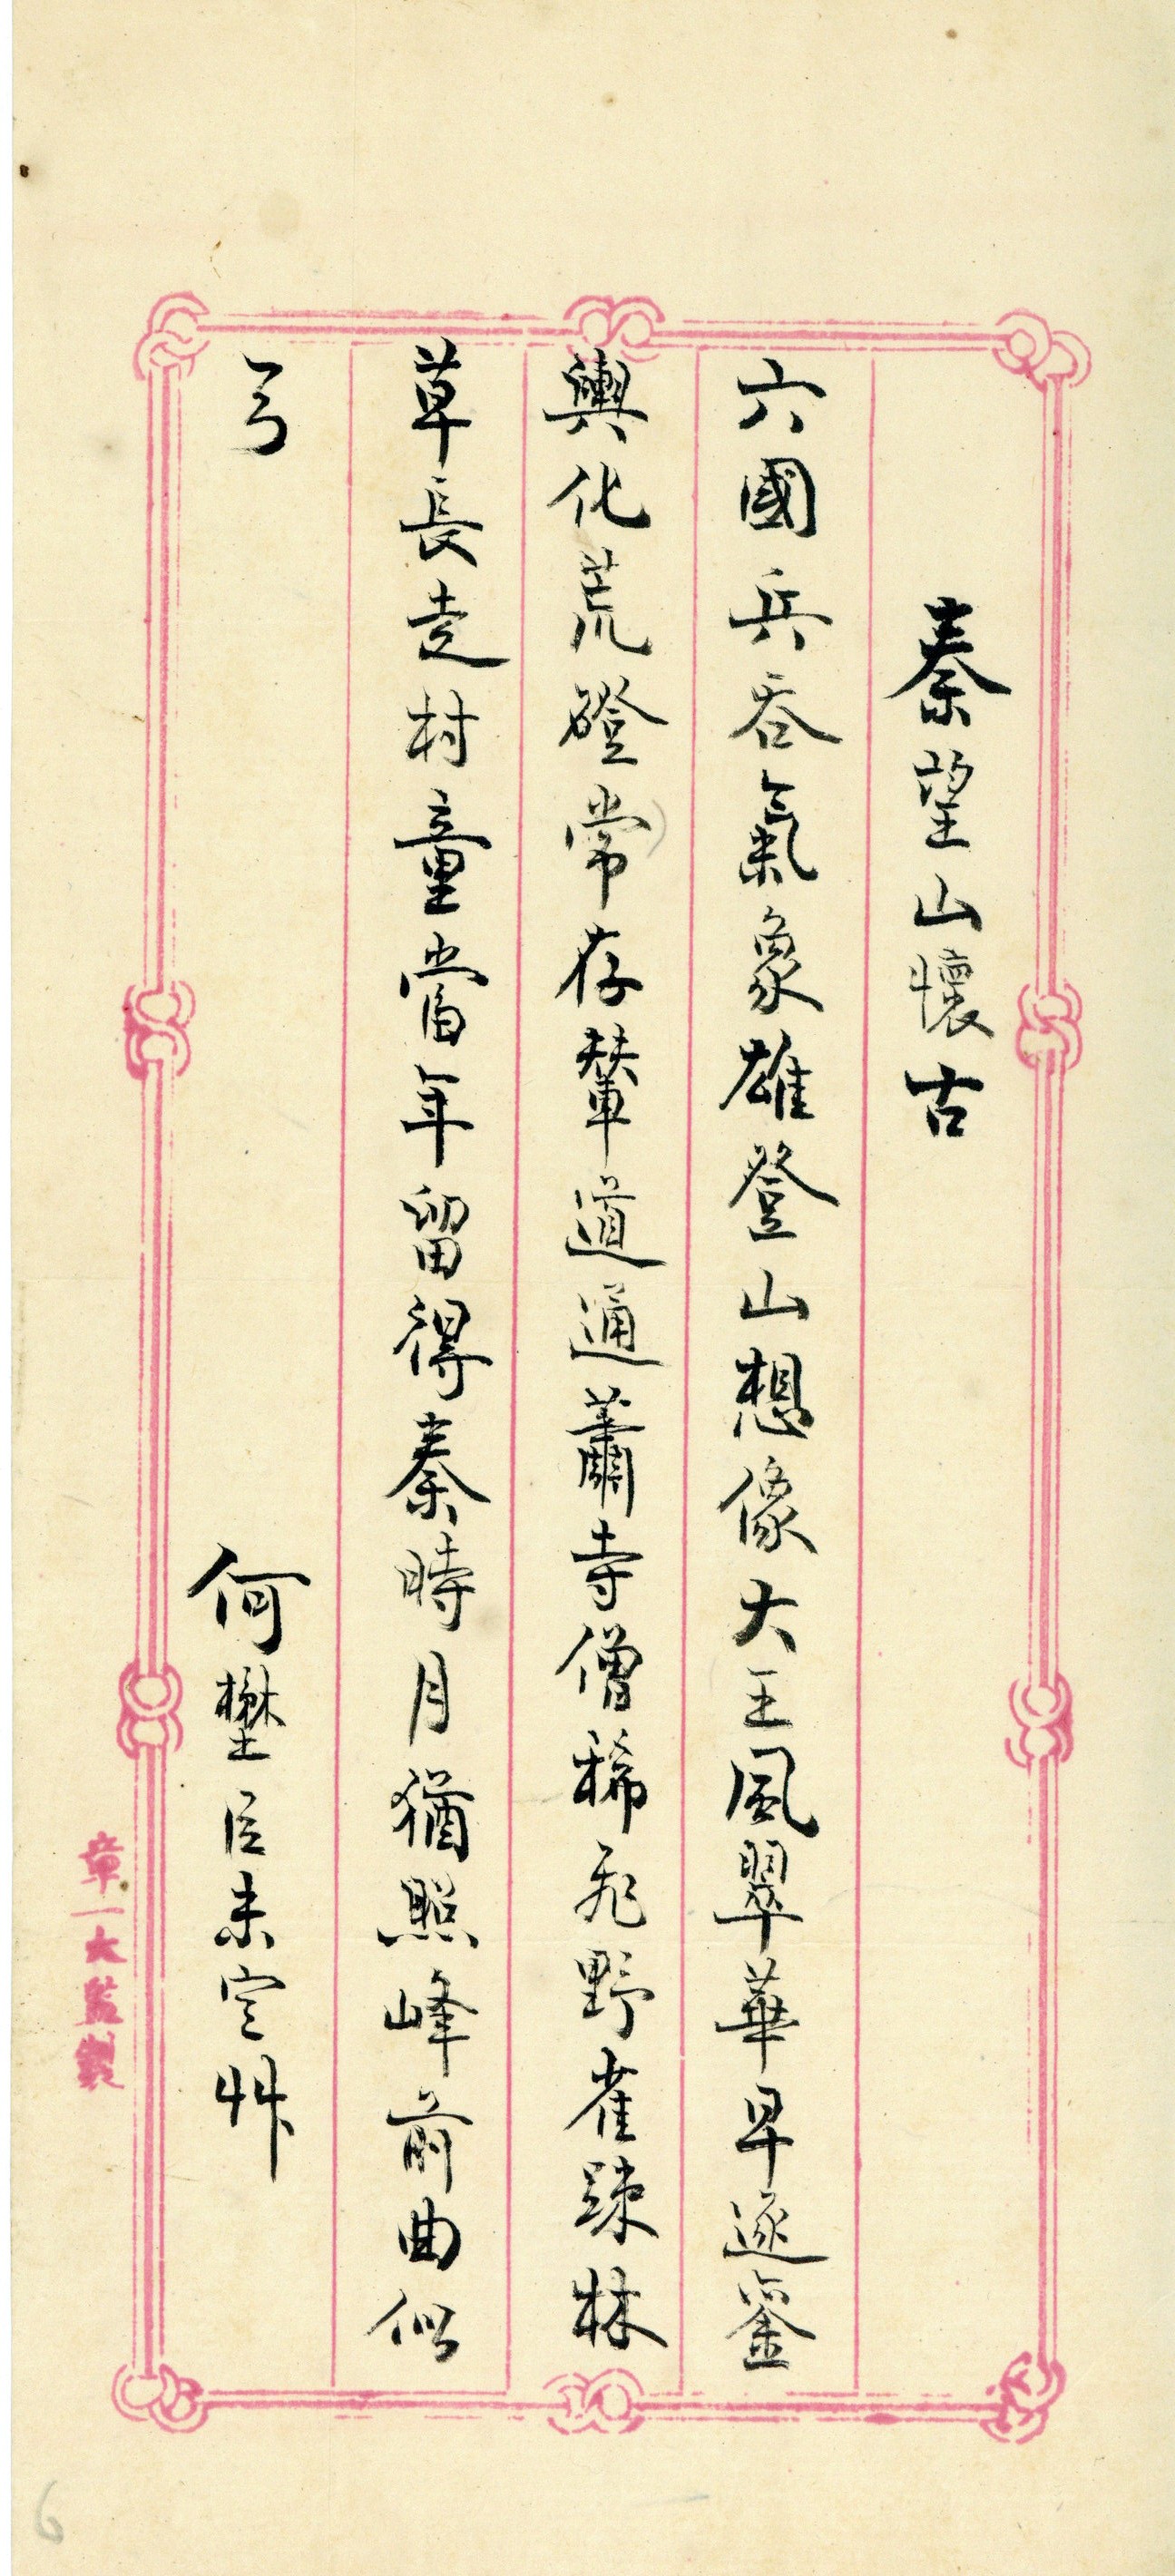 秦望山懷古
六國兵吞氣象雄登山想像大王風翠華早逐鑾
輿化荒磴常存輦道通蕭寺僧稀飛野雀疎林
草長走村童當年留得秦時月猶照峰前曲似
弓
何樊臣未定艸
章一大監製
6